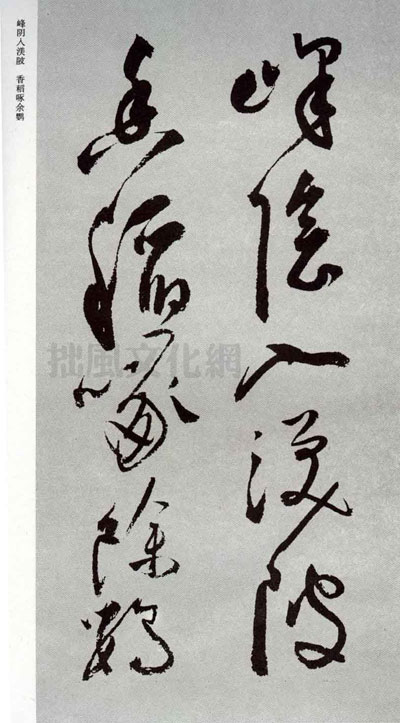 峰陰入渼陂
香稻啄餘鸚
峰阴入渼陂 香稻啄余鹦
拙風文化網